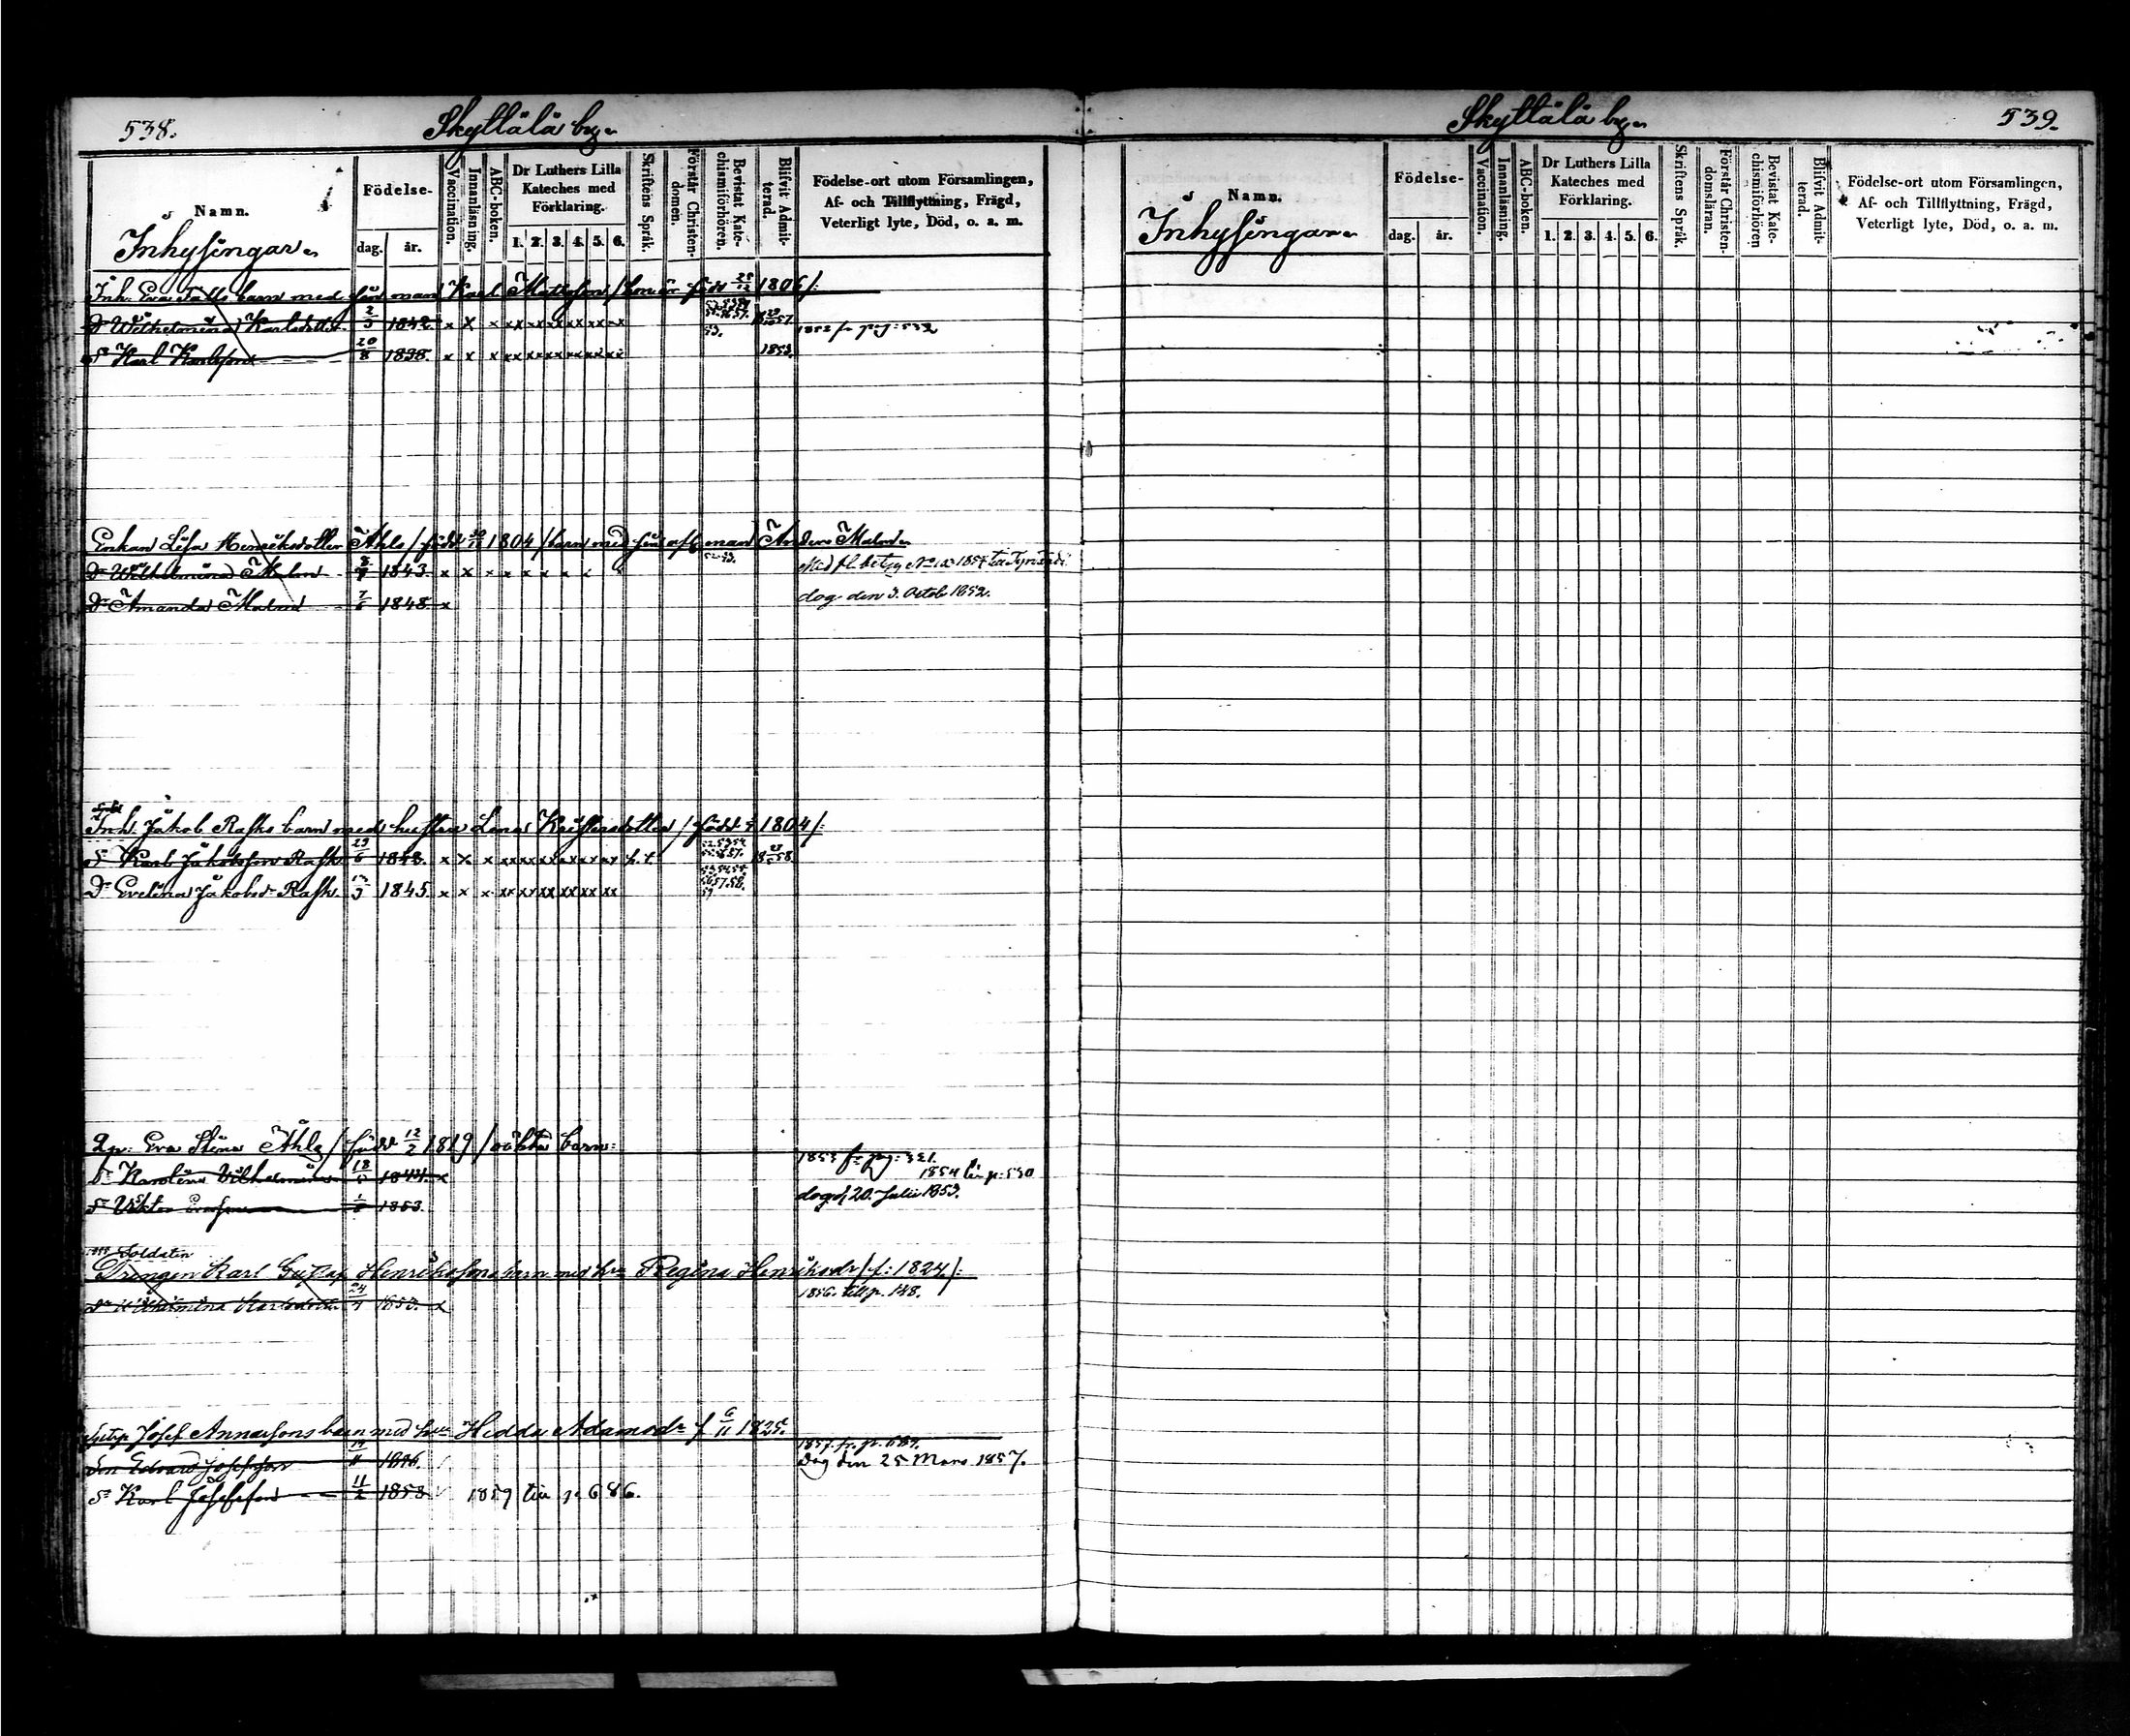 538.
Skyttälä by.
Namn.
Inhysingar.
Födelse-
dag.
år.
Vaccination.
Innanläsning.
ABC-boken.
Dr Luthers Lilla
Kateches med
Förklaring.
1. 2. 3. 4. 5. 6.
Skriftens Språk.
Förstår Christen-
domen.
Bevistat Kate-
chismiförhören.
Blifvit Admit-
terad.
Födelse-ort utom Församlingen,
Af- och Tillflyttning, Frägd,
Veterligt lyte, Död, o. a. m.
Inh. Eva barn med sin man Karl Mattsson / hon är född 1806/:
Dr Wilhelmina Karlsdotter 1842 x x x xx xx xx xx xx x 53. 1852 fr pag: 532
Sn Karl Karlsson 20/8 1838. x x x xx xx xx xx xx xx 1853.
Enkan Lisa Henriksdotter Åhls / född 1804 / barn med sin afl. man Anders Malm
Dr Wilhelmina Malm 1843. x x x x x x x 52. 53.
Dr Amanda Malm 7/6 1848 x dog den 3. Octob 1852.
Inh. Jakob Rasks barn med hustru Lena Kristersdotter / född 1804/:
Sn Karl Jakobsson Rask 1843. x x x xx xx xx xx xx xx
Dr Evelina Jakobsdr Rask. 1845. x x x xx xx xx xx xx xx
Qp: Eva Stina Åhls / född 12/2 1819 / oäkta barn:
1853 fr pag: 321.
Dr Karolina Vilhelmina 1844. x 1854 till p: 530
Sn Viktor Evasson 1853. dog d 20. Julii 1853.
Soldaten
Drengen Karl Gustaf Henrikssons barn med hru Regina Henriksdr / f: 1824/:
Dr Wilhelmina Karlsdotter 1853. x 1856 till p. 148.
Josef Annassons barn med hru Hedda Adamsdr f 6/11 1825.
Son Edvard Josefsson 1857. fr. p.
Dog den 25 Mars 1857.
Sn Karl Josefsson 11/2 1853 1859 till p. 686.
Skyttälä by.
539.
Namn.
Inhysingar.
Födelse-
dag.
år.
Vaccination.
Innanläsning.
ABC-boken.
Dr Luthers Lilla
Kateches med
Förklaring.
1. 2. 3. 4. 5. 6.
Skriftens Språk.
Förstår Christen-
domsläran.
Bevistat Kate-
chismiförhören
Blifvit Admit-
terad.
Födelse-ort utom Församlingen,
Af- och Tillflyttning, Frägd,
Veterligt lyte, Död, o. a. m.